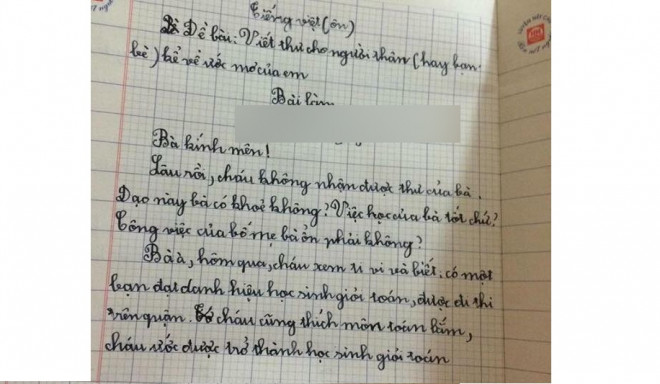 Tiếng việt (ôn)
Đề bài: Viết thư cho người thân (hay bạn
bè) kể về ước mơ của em
Bài làm
Bà kính mên!
Lâu rồi, cháu không nhận được thư của bà.
Dạo này bà có khoẻ không? Việc học của bà tốt chứ?
Công việc của bố mẹ bà ổn phải không?
Bà à, hôm qua, cháu xem ti vi và biết có một
bạn đạt danh hiệu học sinh giỏi toán, được đi thi
trên quận. cháu cũng thích môn toán lắm,
cháu ước được trở thành học sinh giỏi toán